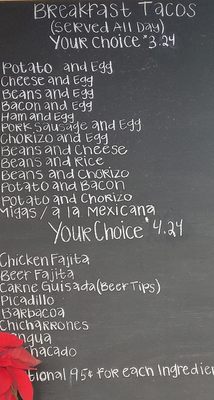 Breakfast Tacos
(Served All Day)
Your Choice $3.24
Potato and Egg
Cheese and Egg
Beans and Egg
Bacon and Egg
Ham and Egg
Pork Sausage and Egg
Chorizo and Egg
Beans and Cheese
Beans and Rice
Beans and Chorizo
Potato and Bacon
Potato and Chorizo
Migas / a la Mexicana
Your Choice $4.24
Chicken Fajita
Beer Fajita
Carne Guisada (Beer Tips)
Picadillo
Barbacoa
Chicharrones
ngua
hacado
tional 95¢ for each Ingredien